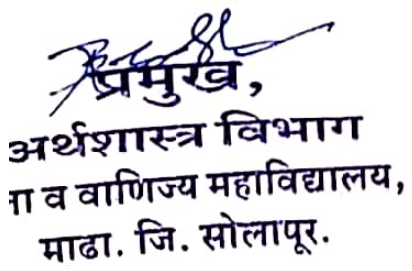 प्रमुख,
अर्थशास्त्र विभाग
व वाणिज्य महाविद्यालय,
माढा. जि. सोलापूर.